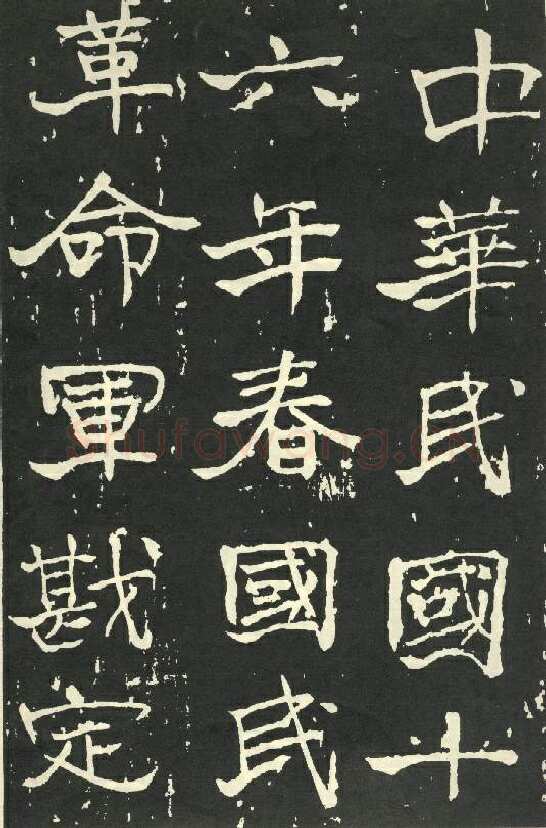 中華民國十
六年春國民
革命軍戡定
Shufawang.cn